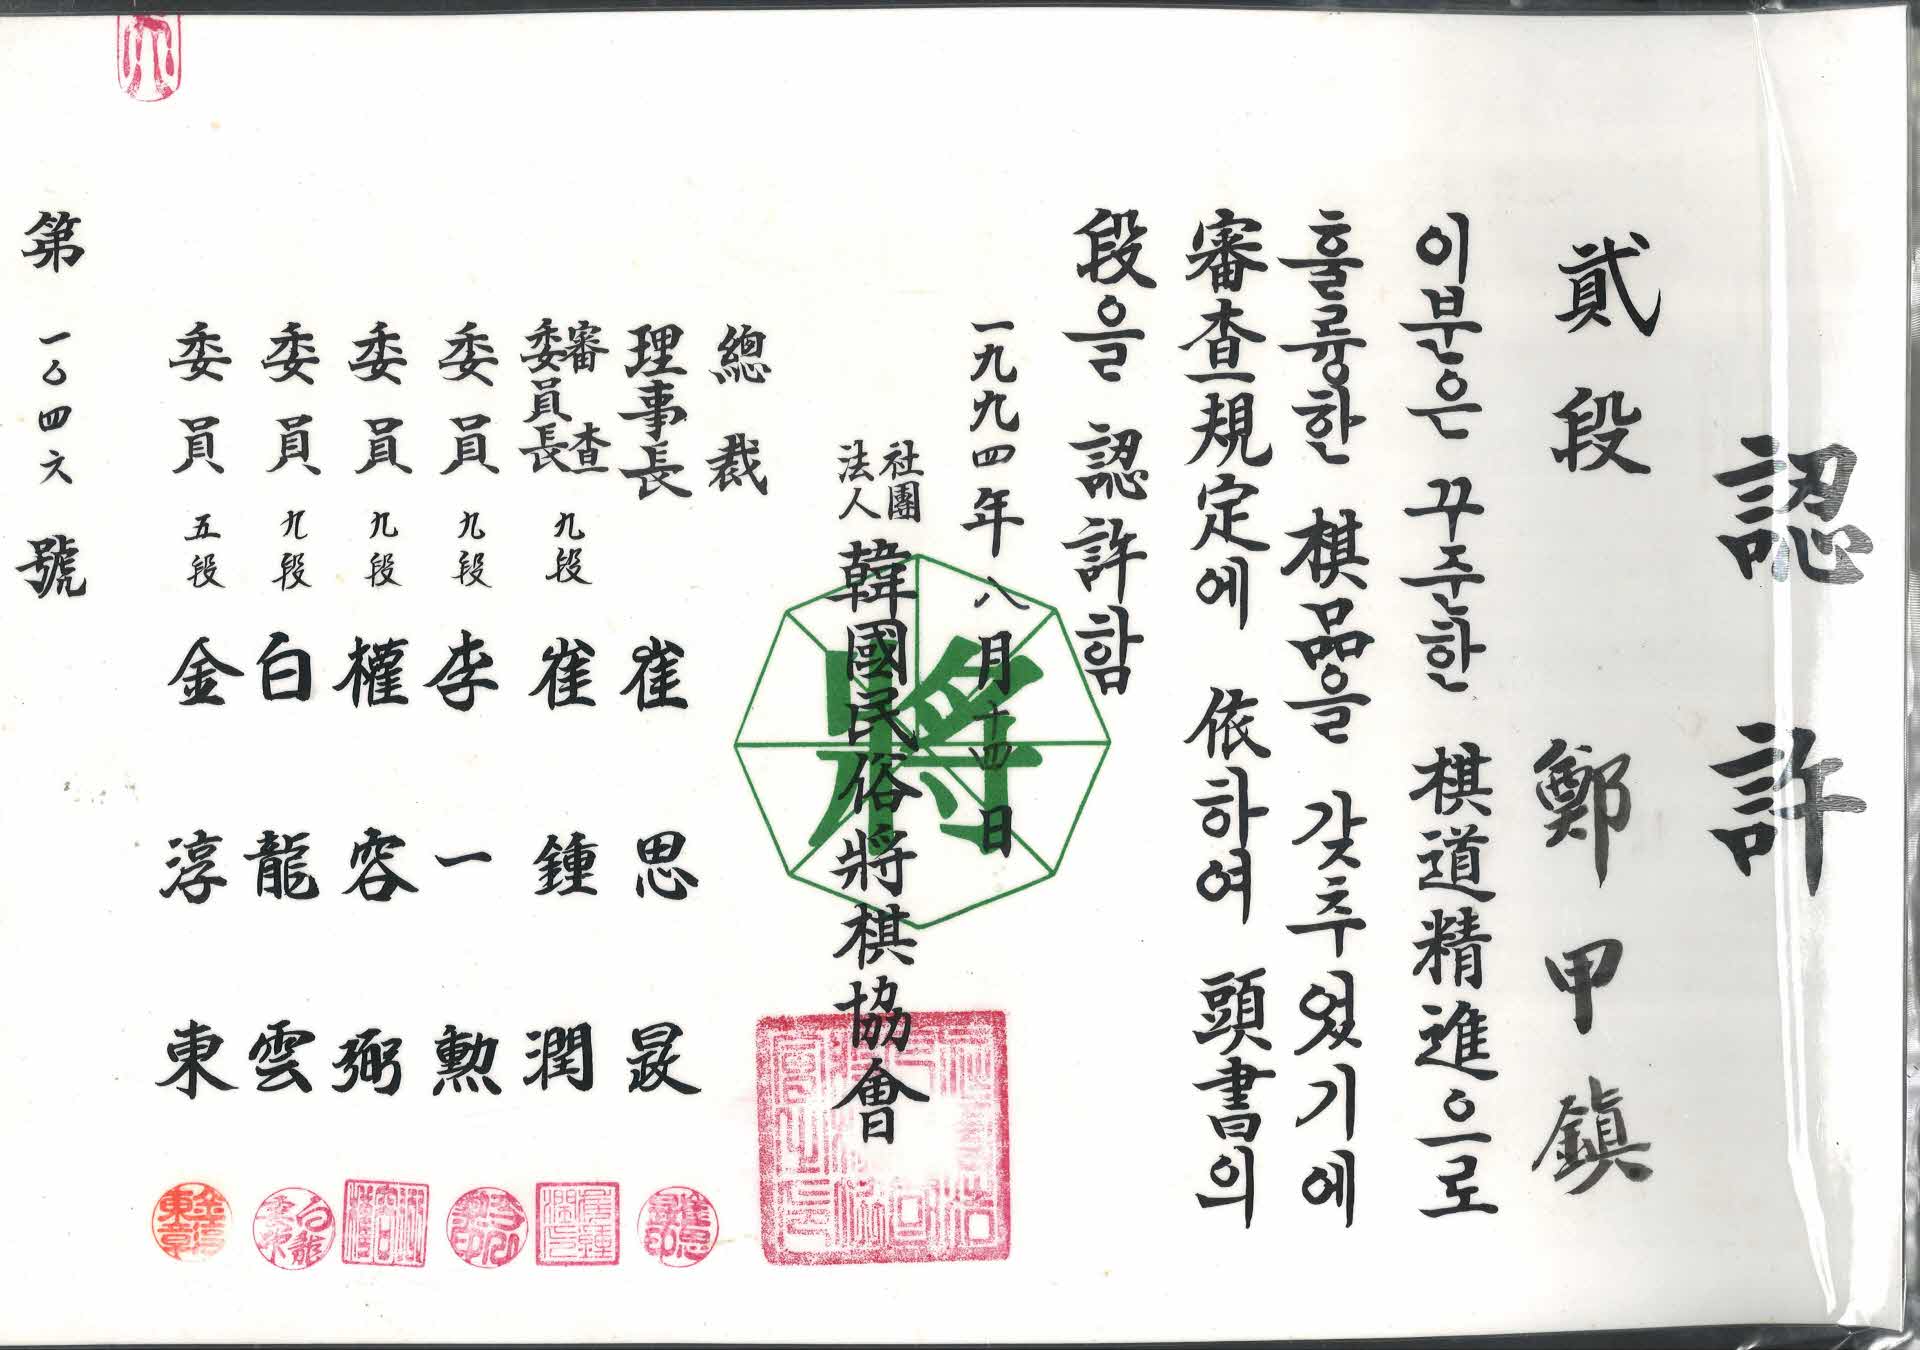 認許
貳段 鄭甲鎭
이분은 꾸준한 棋道精進으로
훌륭한 棋品을 갖추였기에
審査規定에 依하여 頭書의
段을 認許함
一九九四年八月十四日
社團法人 韓國民俗將棋協會
將
總裁
理事長 崔思晸
審査委員長 九段 崔鍾潤
委員 九段 李一勲
委員 九段 權容弼
委員 九段 白龍雲
委員 五段 金淳東
第一〇四六號